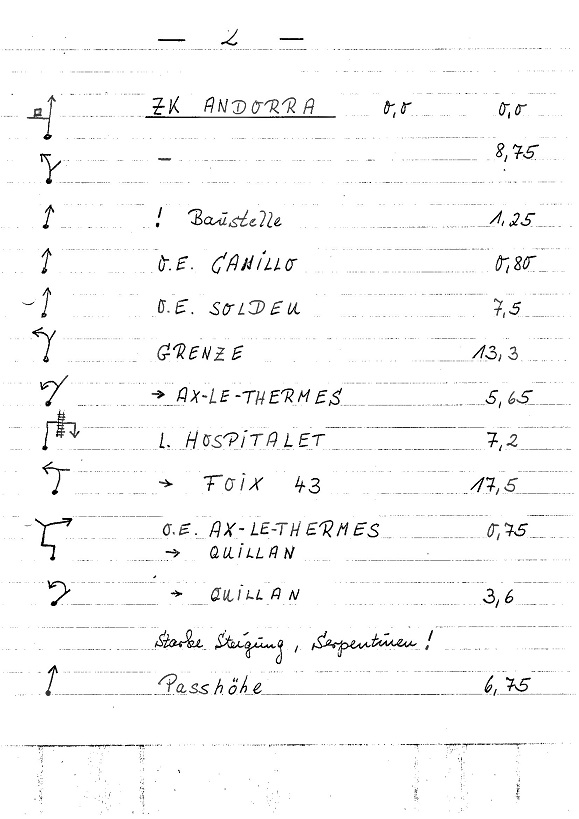 — 2 —
ZK ANDORRA 0,0 0,0
— 8,75
! Baustelle 1,25
O.E. CANILLO 0,80
O.E. SOLDEU 7,5
GRENZE 13,3
→ AX-LE-THERMES 5,65
L. HOSPITALET 7,2
→ FOIX 43 17,5
O.E. AX-LE-THERMES 0,75
→ QUILLAN
→ QUILLAN 3,6
Starke Steigung, Serpentinen!
Passhöhe 6,75